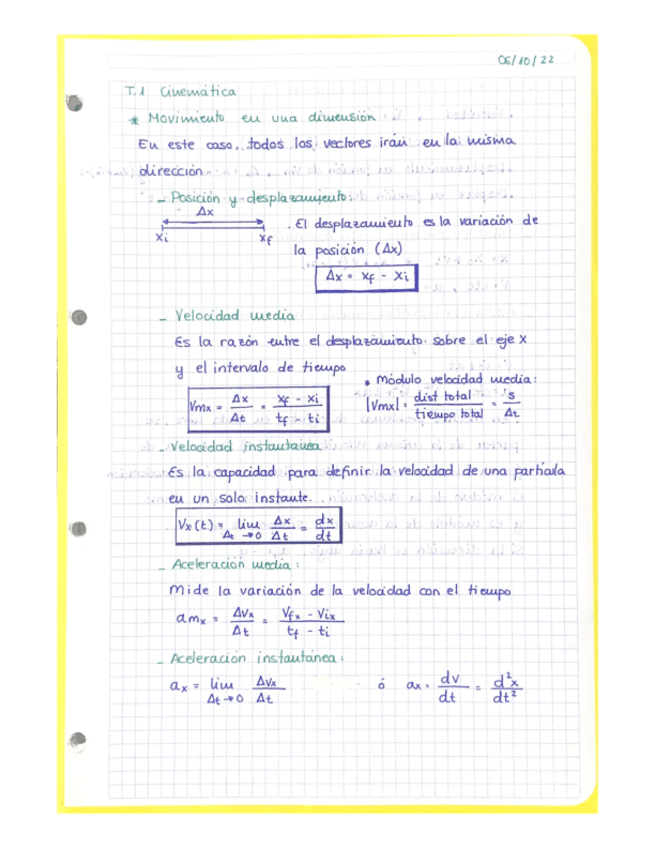 06/10/22
T.1 Cinemática
* Movimiento en una dimensión
En este caso, todos los vectores irán en la misma
dirección
- Posición y desplazamiento:
Δx
xi xf
. El desplazamiento es la variación de
la posición (Δx)
Δx = xf - xi
- Velocidad media
Es la razón entre el desplazamiento sobre el eje x
y el intervalo de tiempo
* Módulo velocidad media:
Vmx = Δx/Δt = (xf - xi)/(tf - ti)
|Vmx| = dist total/tiempo total = 's/Δt
- Velocidad instantánea
Es la capacidad para definir la velocidad de una partícula
en un solo instante.
Vx(t) = lim Δt→0 Δx/Δt = dx/dt
- Aceleración media:
Mide la variación de la velocidad con el tiempo
amx = ΔVx/Δt = (Vfx - Vix)/(tf - ti)
- Aceleración instantánea:
ax = lim Δt→0 ΔVx/Δt ó ax = dv/dt = d²x/dt²